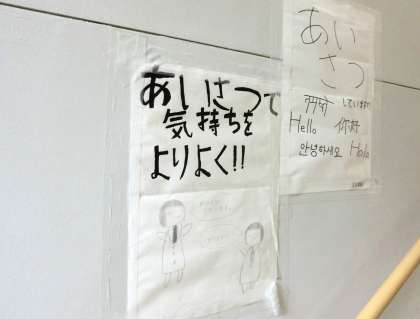 あいさつで
気持ちを
よりよく!!
あい
さつ
しています?
Hello 你好
안녕하세요 Hola